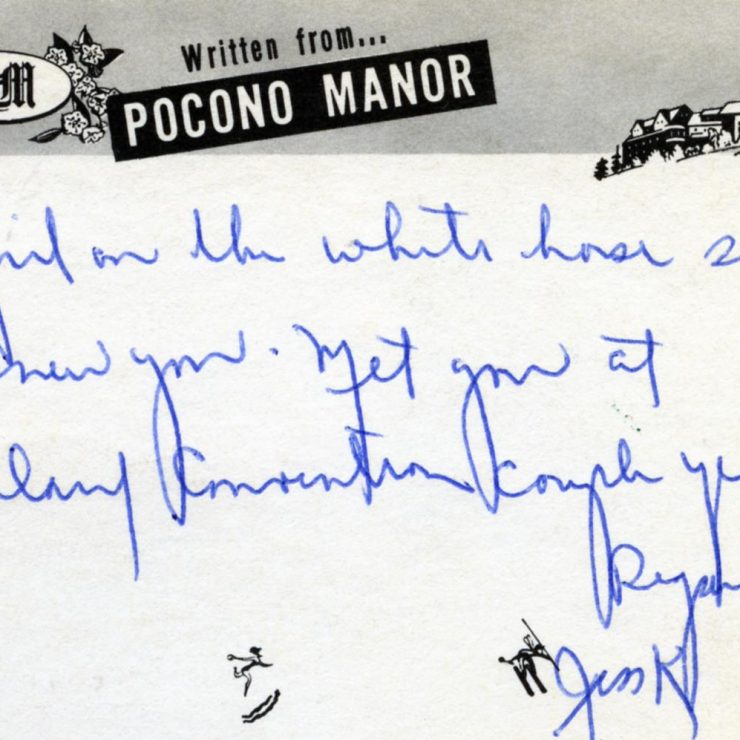 M
Written from...
POCONO MANOR
on the white horse s
knew you. Met you at
Convention couple ye
Jess K